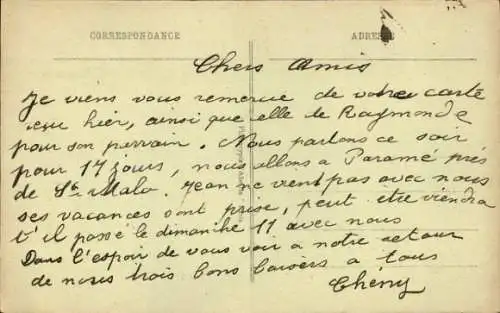 CORRESPONDANCE
ADRESSE
Chers Amis
Je viens vous remercie de votre carte
reçu hier, ainsi que elle de Raymonde
pour son parrain. Nous partons ce soir
pour 17 jours, nous allons a Paramé près
de St Malo. Jean ne vient pas avec nous
ses vacances sont prise, peut être viendra
t'il passé le dimanche 11 avec nous
Dans l'espoir de vous voir a notre retour
de nous trois bons baisers a tous
Chény